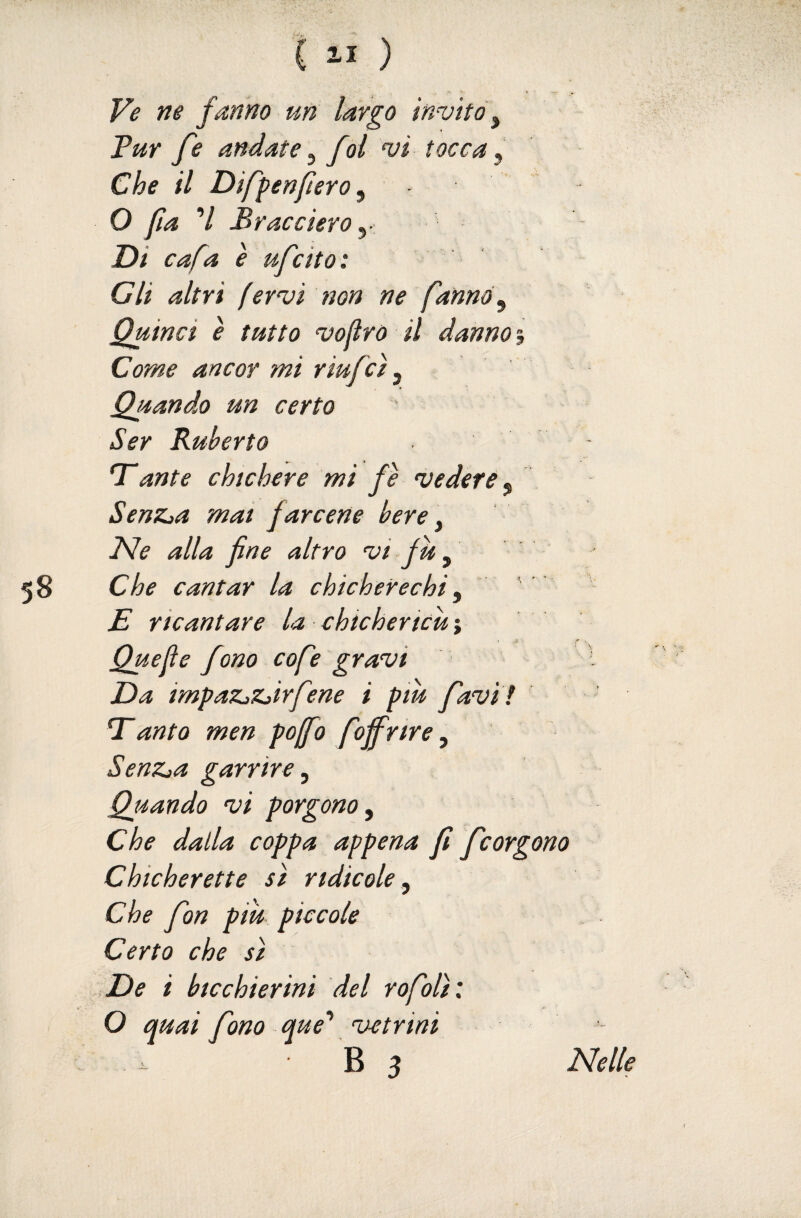 ( 21 )
Ve ne fanno un largo invito,
Pur ſe andate, ſol vi tocca,
Che il Diſpenſiero,
O ſia 'l Bracciero,
Di caſa è uſcito:
Gli altri ſervi non ne fanno,
Quinci è tutto voſtro il danno;
Come ancor mi riuſcì,
Quando un certo
Ser Ruberto
Tante chichere mi fè vedere,
Senza mai farcene bere,
Ne alla fine altro vi fù,
58 Che cantar la chicherechi,
E ricantare la chichericù;
Queſte ſono coſe gravi
Da impazzirſene i più ſavi!
Tanto men poſſo ſoffrire,
Senza garrire,
Quando vi porgono,
Che dalla coppa appena ſi ſcorgono
Chicherette sì ridicole,
Che ſon più piccole
Certo che sì
De i bicchierini del roſolì:
O quai ſono que' vetrini
B 3 Nelle